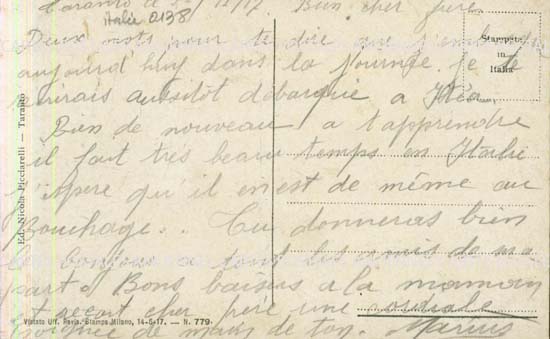 Tarante le 5/12/17 Bien cher père
italie 0138
Deux mots pour te dire que j'embarque
aujourd'huy dans la journée. Je te
renirais aussitôt débarqué a Itéa
Stampata
in
Italia
Bien de nouveau a t'apprendre
il fait très beau temps en Italie
j'espere qu'il en est de même au
Bouchage.. Tu donneras bien
le bonjour a tout les amis de ma
part et Bons baisers a la maman
et reçoit cher père une cordiale
poignée de main de ton. Marius
Ed. Nicola Picciarelli — Taranto
Visto Uff. Revis. Stampa Milano, 14-5-17. — N. 779.